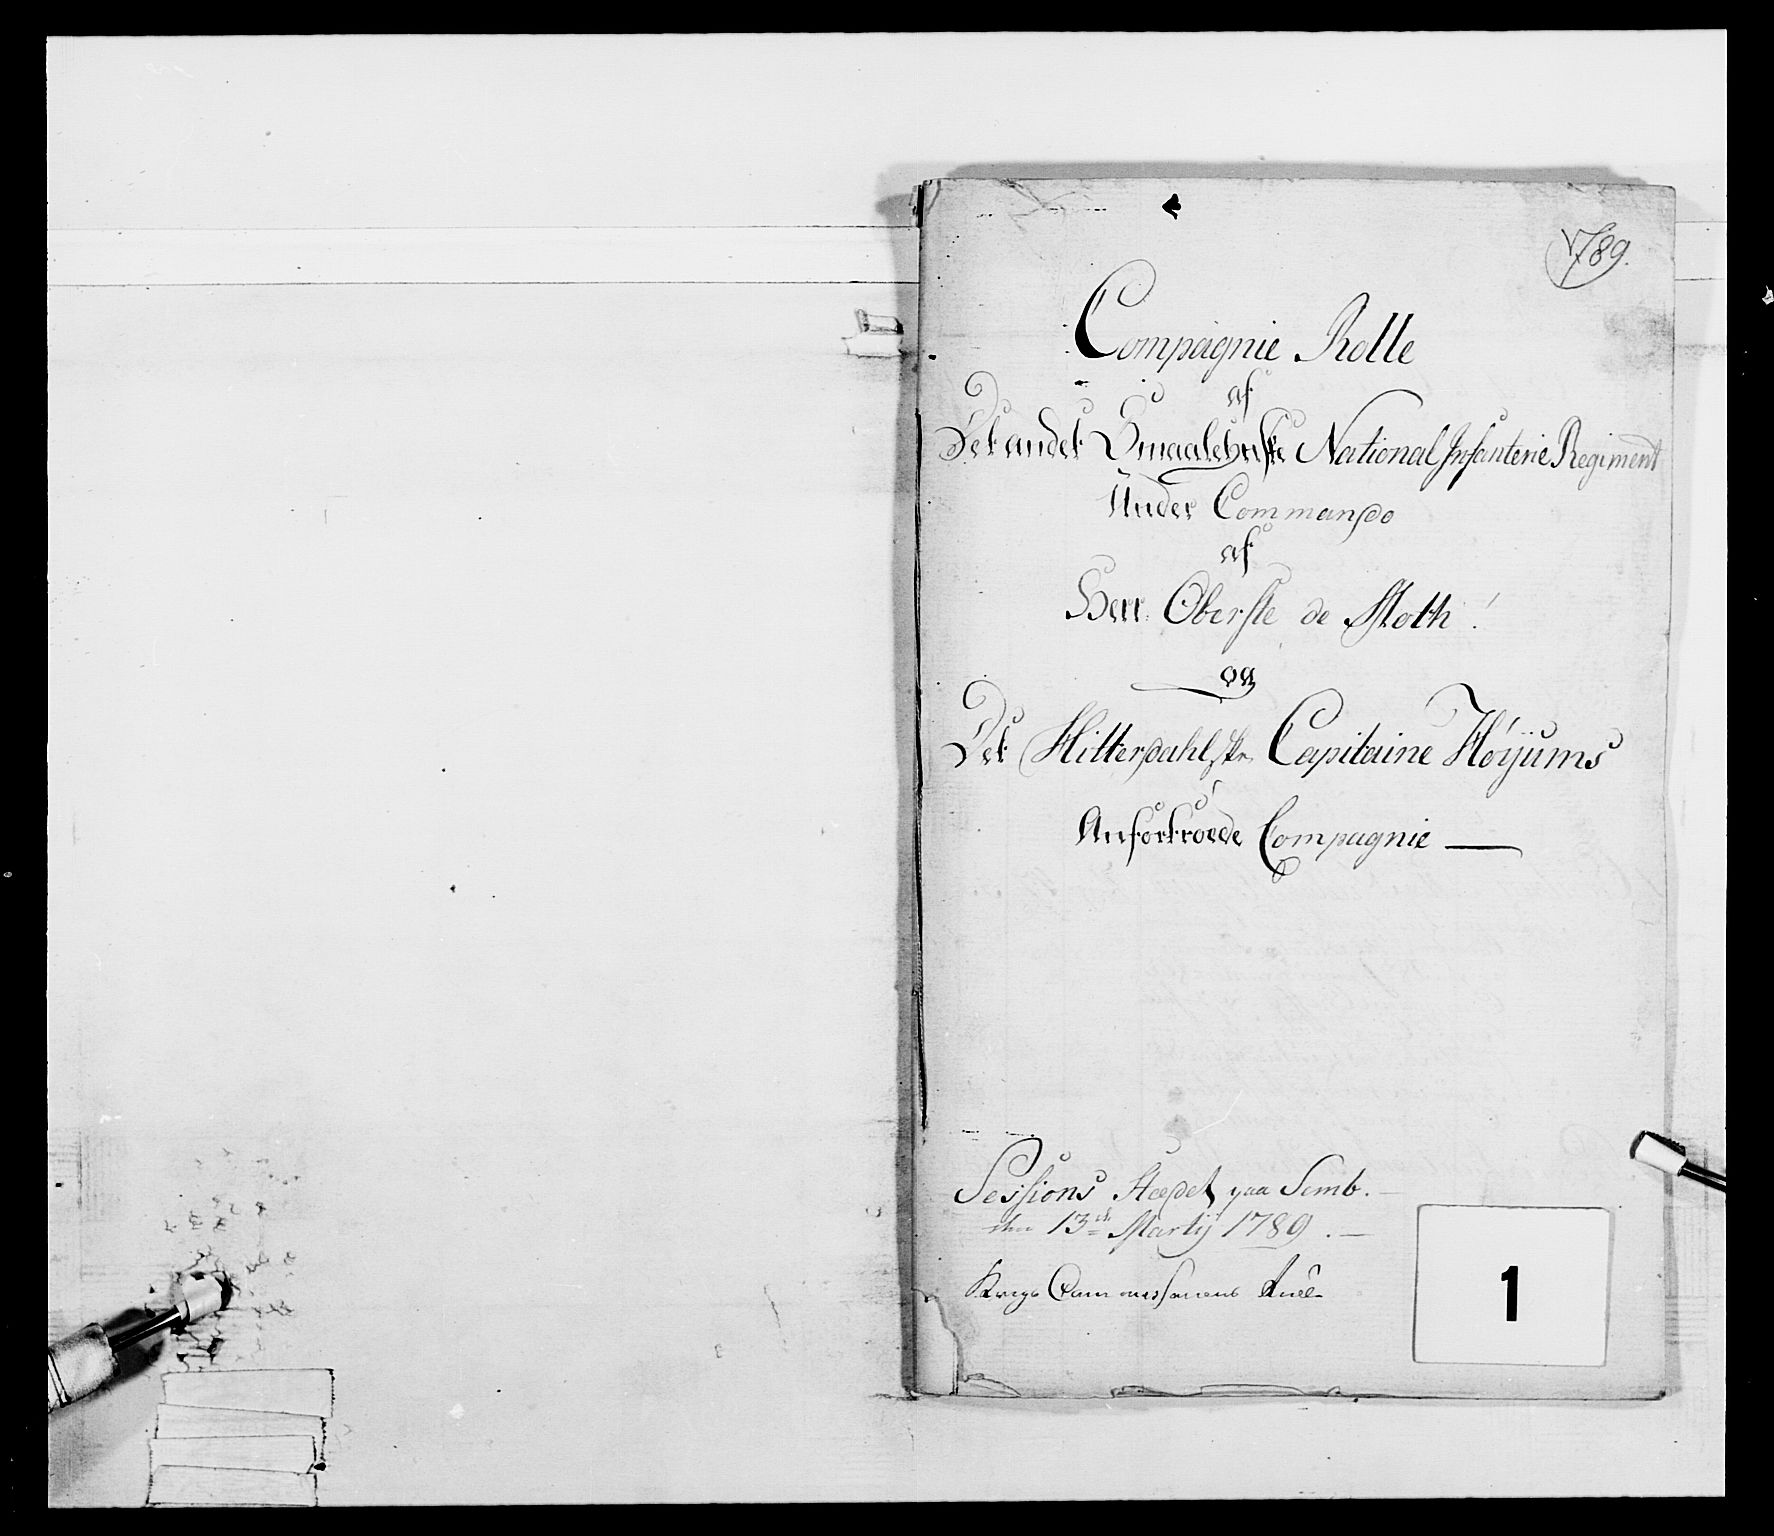 1789.
Compagnie Rolle
af
Det andet Smaalehnske National Infanterie Regiment
Under Commando
af
Herr Oberste de Moth!
og
Det Hitterdahlske Capitaine Höyums
Anfortroede Compagnie —
Sessions Stædet paa Semb. —
den 13de Martij 1789. —
Krigs Commissairens
1